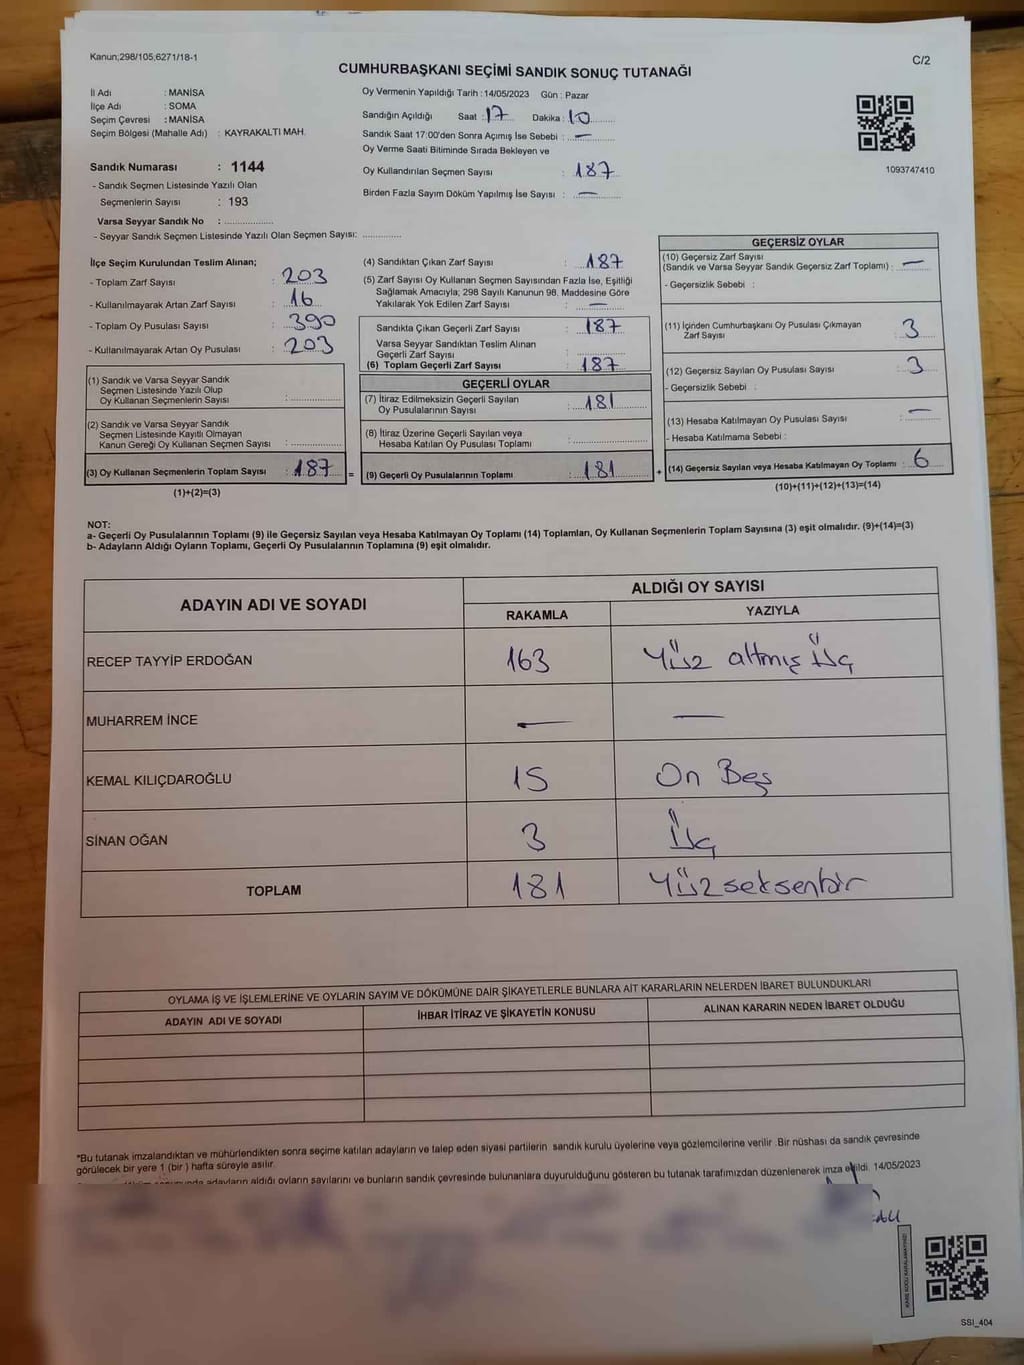 Kanun;298/105;6271/18-1
C/2
CUMHURBAŞKANI SEÇİMİ SANDIK SONUÇ TUTANAĞI
İl Adı : MANİSA
İlçe Adı : SOMA
Seçim Çevresi : MANİSA
Seçim Bölgesi (Mahalle Adı) : KAYRAKALTI MAH.
Sandık Numarası : 1144
- Sandık Seçmen Listesinde Yazılı Olan
Seçmenlerin Sayısı : 193
Varsa Seyyar Sandık No : ..................
- Seyyar Sandık Seçmen Listesinde Yazılı Olan Seçmen Sayısı: ..............
Oy Vermenin Yapıldığı Tarih : 14/05/2023 Gün : Pazar
Sandığın Açıldığı Saat : 17 Dakika : 10
Sandık Saat 17:00'den Sonra Açımış İse Sebebi : —
Oy Verme Saati Bitiminde Sırada Bekleyen ve
Oy Kullandırılan Seçmen Sayısı : 187
Birden Fazla Sayım Döküm Yapılmış İse Sayısı : —
1093747410
İlçe Seçim Kurulundan Teslim Alınan;
- Toplam Zarf Sayısı : 203
- Kullanılmayarak Artan Zarf Sayısı : 16
- Toplam Oy Pusulası Sayısı : 390
- Kullanılmayarak Artan Oy Pusulası : 203
(1) Sandık ve Varsa Seyyar Sandık
Seçmen Listesinde Yazılı Olup
Oy Kullanan Seçmenlerin Sayısı :
(2) Sandık ve Varsa Seyyar Sandık
Seçmen Listesinde Kayıtlı Olmayan
Kanun Gereği Oy Kullanan Seçmen Sayısı :
(3) Oy Kullanan Seçmenlerin Toplam Sayısı : 187 =
(1)+(2)=(3)
(4) Sandıktan Çıkan Zarf Sayısı : 187
(5) Zarf Sayısı Oy Kullanan Seçmen Sayısından Fazla İse, Eşitliği
Sağlamak Amacıyla; 298 Sayılı Kanunun 98. Maddesine Göre
Yakılarak Yok Edilen Zarf Sayısı : —
Sandıkta Çıkan Geçerli Zarf Sayısı : 187
Varsa Seyyar Sandıktan Teslim Alınan
Geçerli Zarf Sayısı :
(6) Toplam Geçerli Zarf Sayısı : 187
GEÇERLİ OYLAR
(7) İtiraz Edilmeksizin Geçerli Sayılan
Oy Pusulalarının Sayısı : 181
(8) İtiraz Üzerine Geçerli Sayılan veya
Hesaba Katılan Oy Pusulası Toplamı :
(9) Geçerli Oy Pusulalarının Toplamı : 181 +
GEÇERSİZ OYLAR
(10) Geçersiz Zarf Sayısı
(Sandık ve Varsa Seyyar Sandık Geçersiz Zarf Toplamı) : —
- Geçersizlik Sebebi :
(11) İçinden Cumhurbaşkanı Oy Pusulası Çıkmayan
Zarf Sayısı : 3
(12) Geçersiz Sayılan Oy Pusulası Sayısı : 3
- Geçersizlik Sebebi :
(13) Hesaba Katılmayan Oy Pusulası Sayısı : —
- Hesaba Katılmama Sebebi :
(14) Geçersiz Sayılan veya Hesaba Katılmayan Oy Toplamı : 6
(10)+(11)+(12)+(13)=(14)
NOT:
a- Geçerli Oy Pusulalarının Toplamı (9) ile Geçersiz Sayılan veya Hesaba Katılmayan Oy Toplamı (14) Toplamları, Oy Kullanan Seçmenlerin Toplam Sayısına (3) eşit olmalıdır. (9)+(14)=(3)
b- Adayların Aldığı Oyların Toplamı, Geçerli Oy Pusulalarının Toplamına (9) eşit olmalıdır.
ADAYIN ADI VE SOYADI ALDIĞI OY SAYISI
RAKAMLA YAZIYLA
RECEP TAYYİP ERDOĞAN 163 Yüz altmış Üç
MUHARREM İNCE — —
KEMAL KILIÇDAROĞLU 15 On Beş
SİNAN OĞAN 3 Üç
TOPLAM 181 Yüz seksenbir
OYLAMA İŞ VE İŞLEMLERİNE VE OYLARIN SAYIM VE DÖKÜMÜNE DAİR ŞİKAYETLERLE BUNLARA AİT KARARLARIN NELERDEN İBARET BULUNDUKLARI
ADAYIN ADI VE SOYADI İHBAR İTİRAZ VE ŞİKAYETİN KONUSU ALINAN KARARIN NEDEN İBARET OLDUĞU
*Bu tutanak imzalandıktan ve mühürlendikten sonra seçime katılan adayların ve talep eden siyasi partilerin sandık kurulu üyelerine veya gözlemcilerine verilir .Bir nüshası da sandık çevresinde
görülecek bir yere 1 (bir ) hafta süreyle asılır.
adayların aldığı oyların sayılarını ve bunların sandık çevresinde bulunanlara duyurulduğunu gösteren bu tutanak tarafımızdan düzenlenerek imza edildi. 14/05/2023
SSI_404